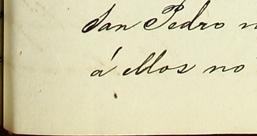 San Pedro
á ellos no